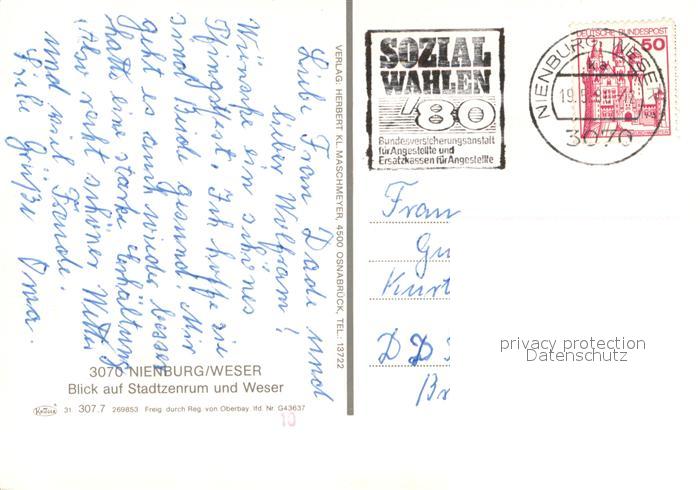 Liebe Frau Dade und
lieber Wolfram!
Wünsche ein schönes
Pfingstfest. Ich hoffe sie
sind Beide gesund. Mir
geht es auch wieder besser
hatte eine starke Erhältung
recht schönes Wetter
und viel Freude.
Viele Grüße Oma.
3070 NIENBURG/WESER
Blick auf Stadtzenrum und Weser
Krüger 31 307.7 269853 Freig. durch Reg. von Oberbay. lfd. Nr. G43637
10
VERLAG: HERBERT KL. MASCHMEYER, 4500 OSNABRÜCK, TEL.: 13722
SOZIAL
WAHLEN
'80
Bundesversicherungsanstalt
für Angestellte und
Ersatzkassen für Angestellte
NIENBURG, WESER
3070
DEUTSCHE BUNDESPOST
50
Frau
Gu
Kurt
DDS
Br
privacy protection
Datenschutz